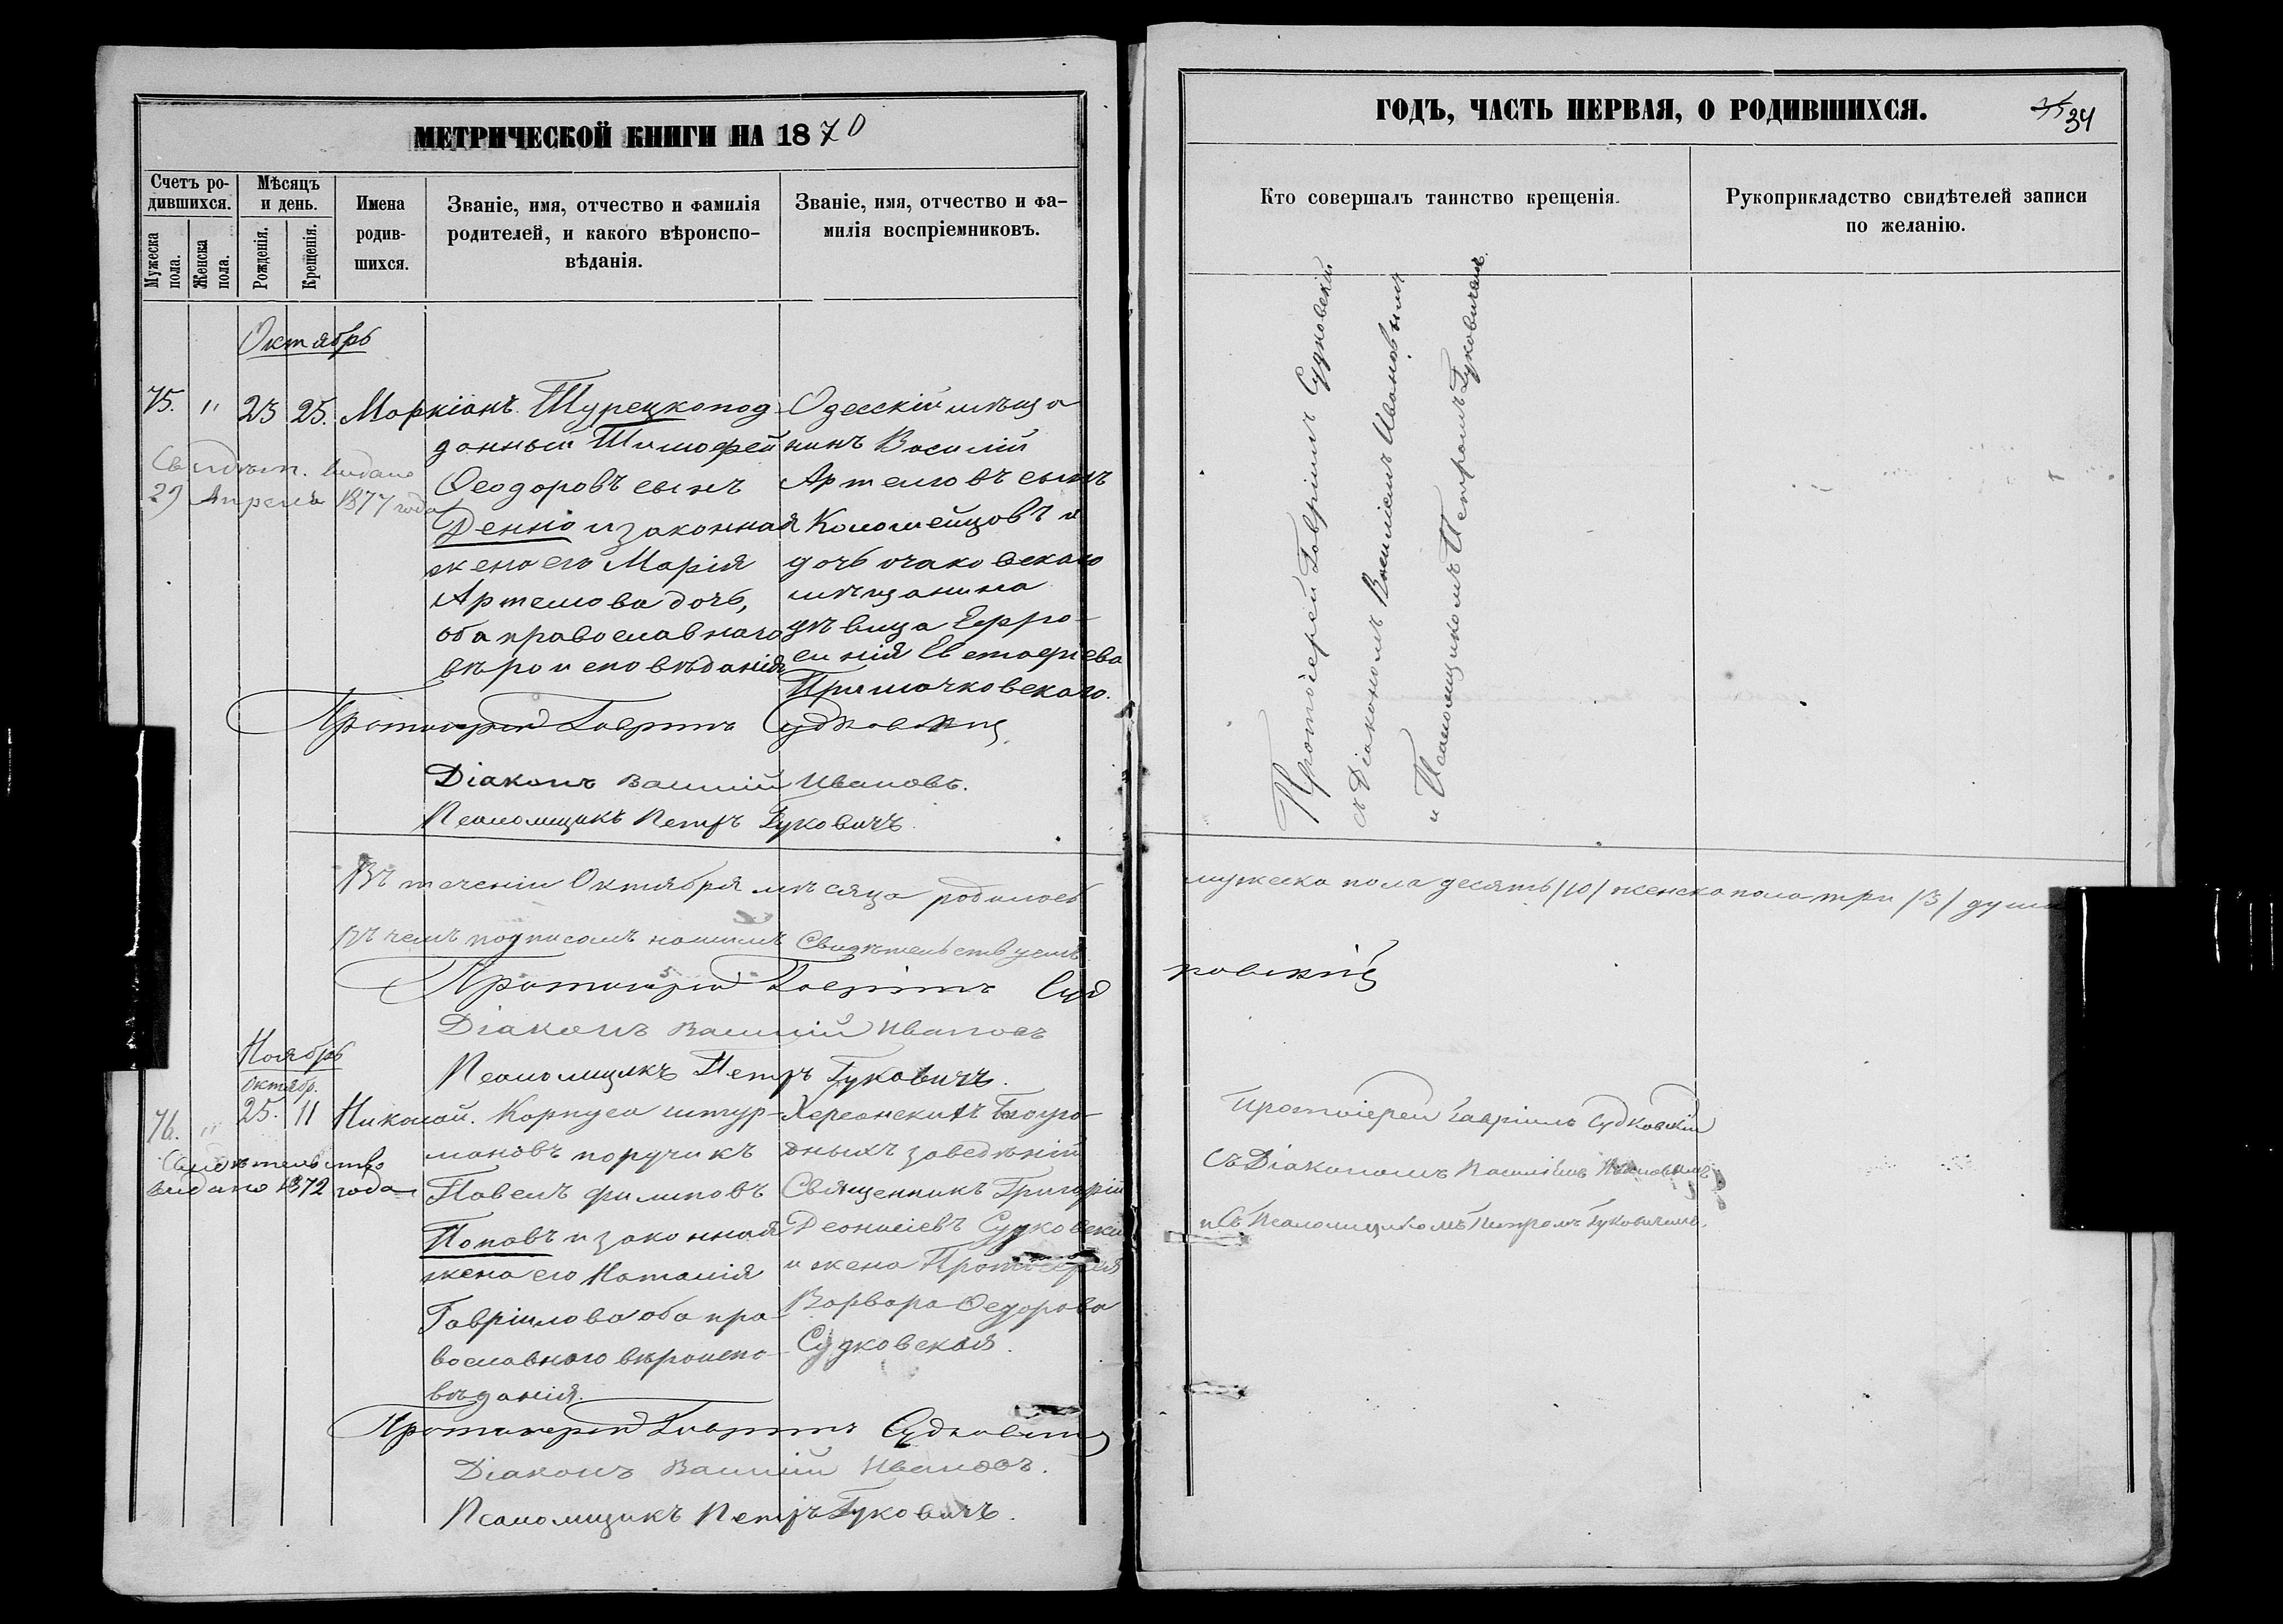 МЕТРИЧЕСКОЙ КНИГИ НА 1870
Счетъ ро-
дившихся.
Мужеска
пола.
Женска
пола.
Мѣсяцъ
и день.
Рожденія.
Крещенія.
Имена
родив-
шихся.
Званіе, имя, отчество и фамилія
родителей, и какого вѣроиспо-
вѣданія.
Званіе, имя, отчество и фа-
милія воспріемниковъ.
Октябрь
75. " 23 25. Маркіанъ.
Свидѣт. видано
29 Апреля 1877 года
Турецкопод
данный Тимофей
Ѳеодоровъ сынъ
Денно и законная
жена его Марія
Артемова дочь,
оба православнаго
вѣроисповѣданія
Одесскій мѣща
нинъ Василій
Артемовъ сынъ
Коломейцовъ и
дочь очаковскаго
мѣщанина
дѣвица Ефро-
синія Евстафіева
Примачковскаго.
Протоіерей Гавріилъ Судковскій
Діаконъ Василій Ивановъ.
Псаломщикъ Петръ Гуковичъ.
Въ теченіи Октября мѣсяца родилось
Въ чемъ подписомъ нашимъ свидѣтельствуемъ
Протоіерей Гавріилъ Суд
Діаконъ Василій Ивановъ
Псаломщикъ Петръ Гуковичъ.
Ноябрь
Октябр.
76. " 25. 11 Николай.
Свидѣтельство
видано 1872 года
Корпуса штур-
мановъ поручикъ
Павелъ Филиповъ
Поповъ и законная
жена его Наталія
Гавріилова оба пра-
вославнаго вѣроиспо-
вѣданія.
Херсонскихъ Богоуго-
дныхъ заведеній
Священникъ Григорій
Деонисіевъ Судковскій
и жена Протоіерея
Варвара Ѳедорова
Судковская.
Протоіерей Гавріилъ Судковскій
Діаконъ Василій Ивановъ.
Псаломщикъ Петръ Гуковичъ.
ГОДЪ, ЧАСТЬ ПЕРВАЯ, О РОДИВШИХСЯ.
35 34
Кто совершалъ таинство крещенія.
Рукоприкладство свидѣтелей записи
по желанію.
Протоіерей Гавріилъ Судковскій
съ Діакономъ Василіемъ Ивановымъ
и Псаломщикомъ Петромъ Гуковичемъ.
мужеска пола десять /10/ женска пола три /3/ души
ковскій
Протоіерей Гавріилъ Судковскій
Съ Діакономъ Василіемъ Ивановымъ
и Съ Псаломщикомъ Петромъ Гуковичемъ.